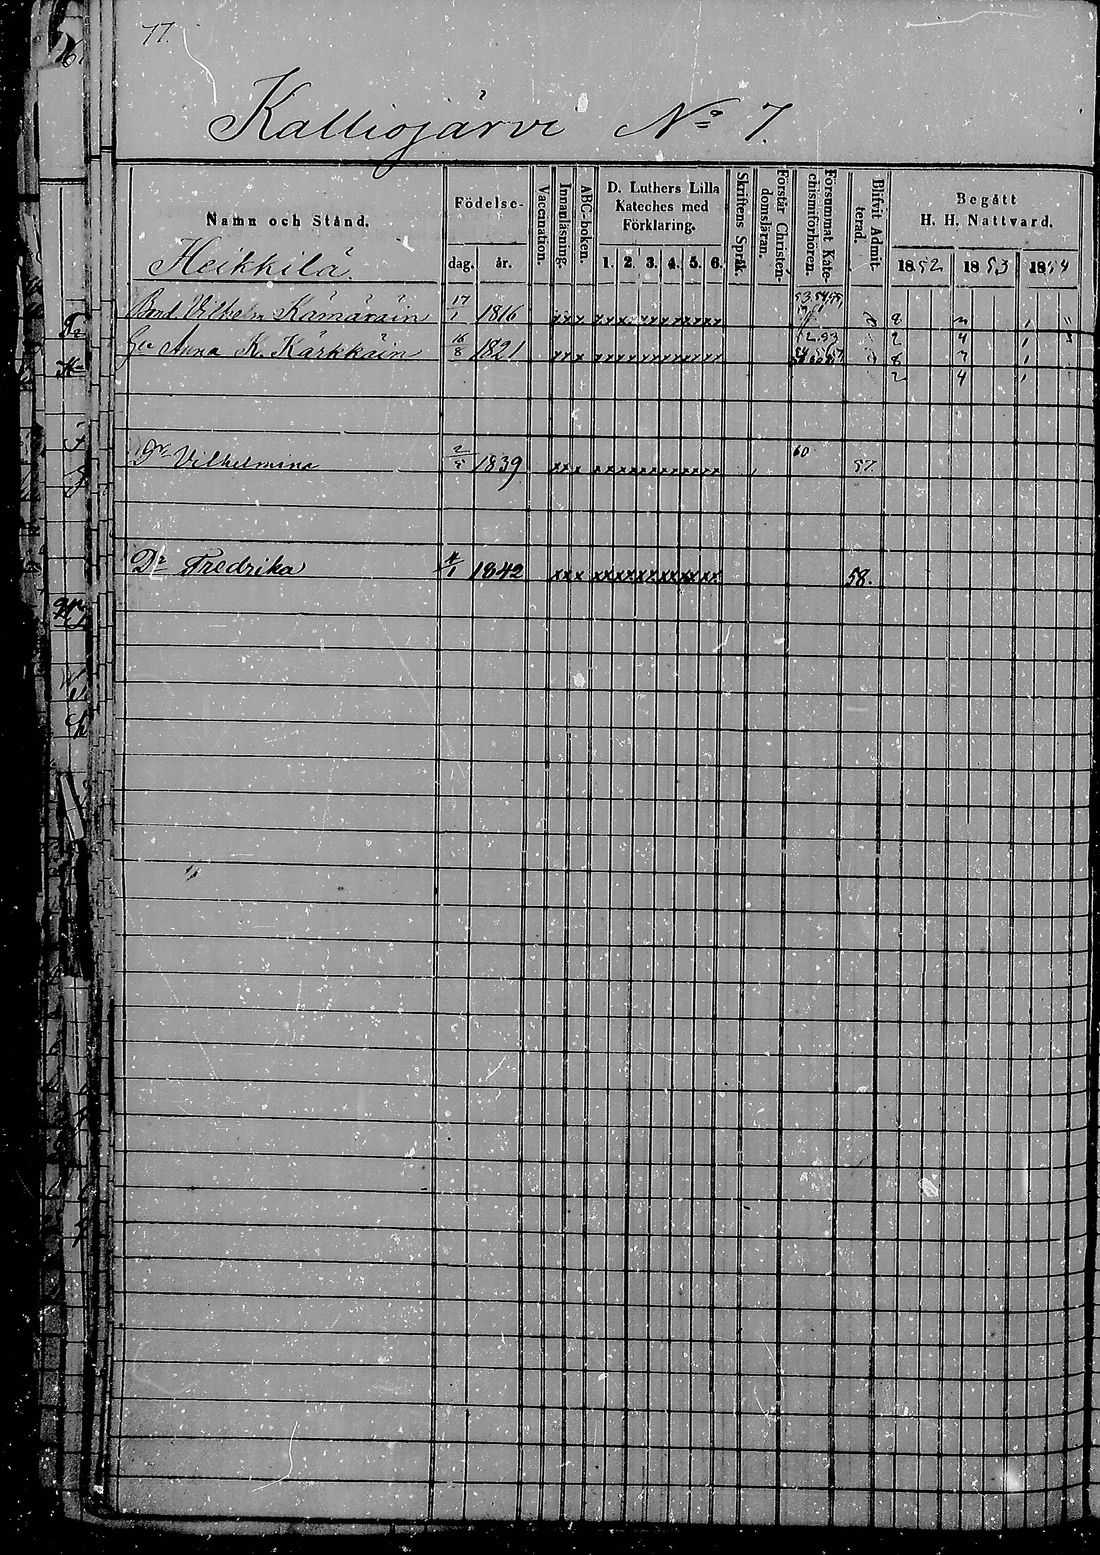 77.
Kalliojärvi No 7.
Namn och Stånd.
Födelse-
dag.
år.
Vaccination.
Innanläsning.
ABC-boken.
D. Luthers Lilla
Kateches med
Förklaring.
1. 2. 3. 4. 5. 6.
Skriftens Språk.
Förstår Christen-
domsläran.
Försummat Kate-
chismiförhören.
Blifvit Admit-
terad.
Begått
H. H. Nattvard.
1852 1853 1854
Heikkilä.
Vilhelm Kämäräin 17/1 1816 xxx xxxxxxxxxxxx
Anna K. Kärkkäin 16/8 1821 xxx xxxxxxxxxxxx
Dr Vilhelmina 1839 xxx xxxxxxxxxxxx 60 57.
Dr Fredrika 1842 xxx xxxxxxxxxxxx 58.